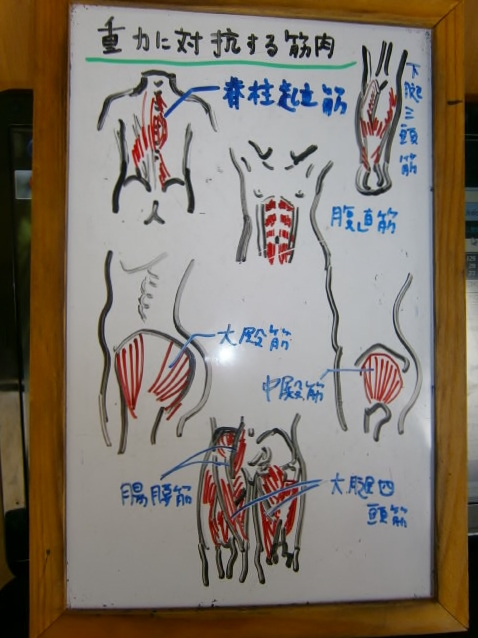 重力に対抗する筋肉
脊柱起立筋
下腿三頭筋
腹直筋
大殿筋
中殿筋
腸腰筋
大腿四
頭筋